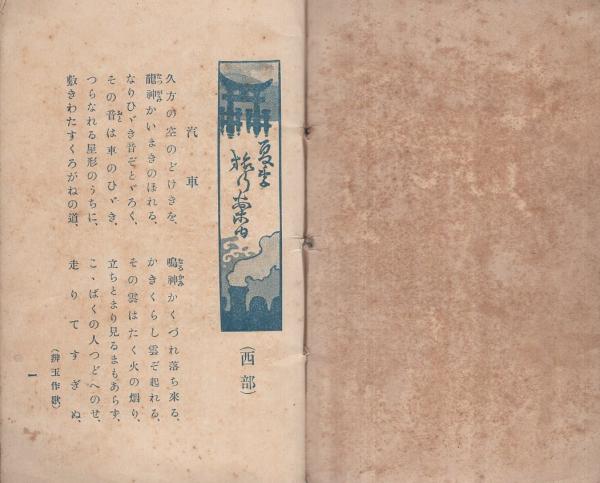 夏季
旅行案内
(西部)
汽車
久方の空のどけきを、鳴神かくづれ落ち來る、
龍神かいまきのぼれる、かきくらし雲ぞ起れる、
なりひゞき音ぞとゞろく、その雲はたく火の烟り、
その音は車のひゞき、立ちとまり見るまもあらず、
つらなれる屋形のうちに、こゝばくの人つどへのせ、
敷きわたすくろがねの道、走りてすぎぬ、
(辨玉作歌)
1